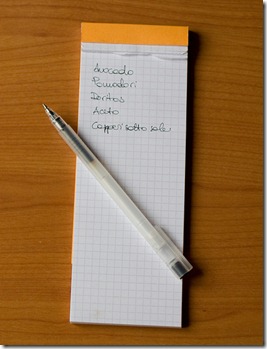 Avocado
Pomodori
Doritos
Aceto
Capperi sotto sale